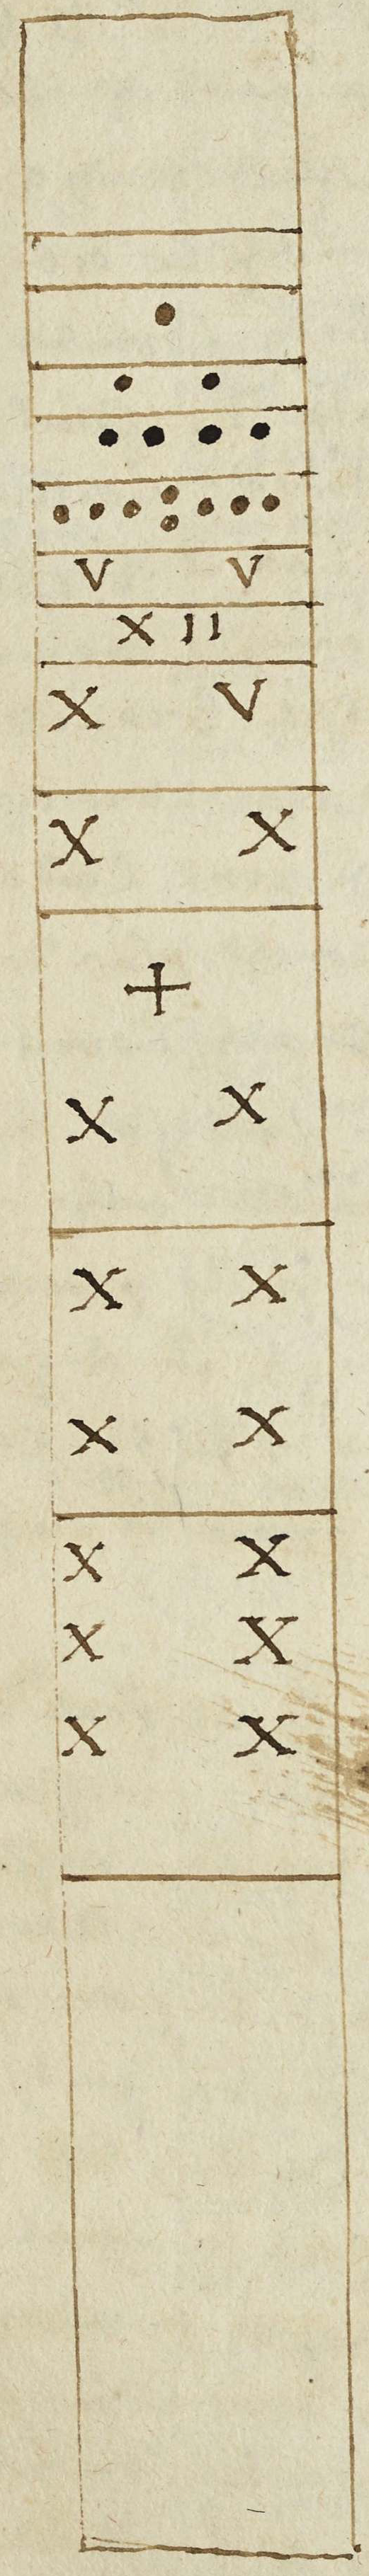 •
• •
• • • •
• • • • • • • •
V V
X II
X V
X X
+
X X
X X
X X
X X
X X
X X